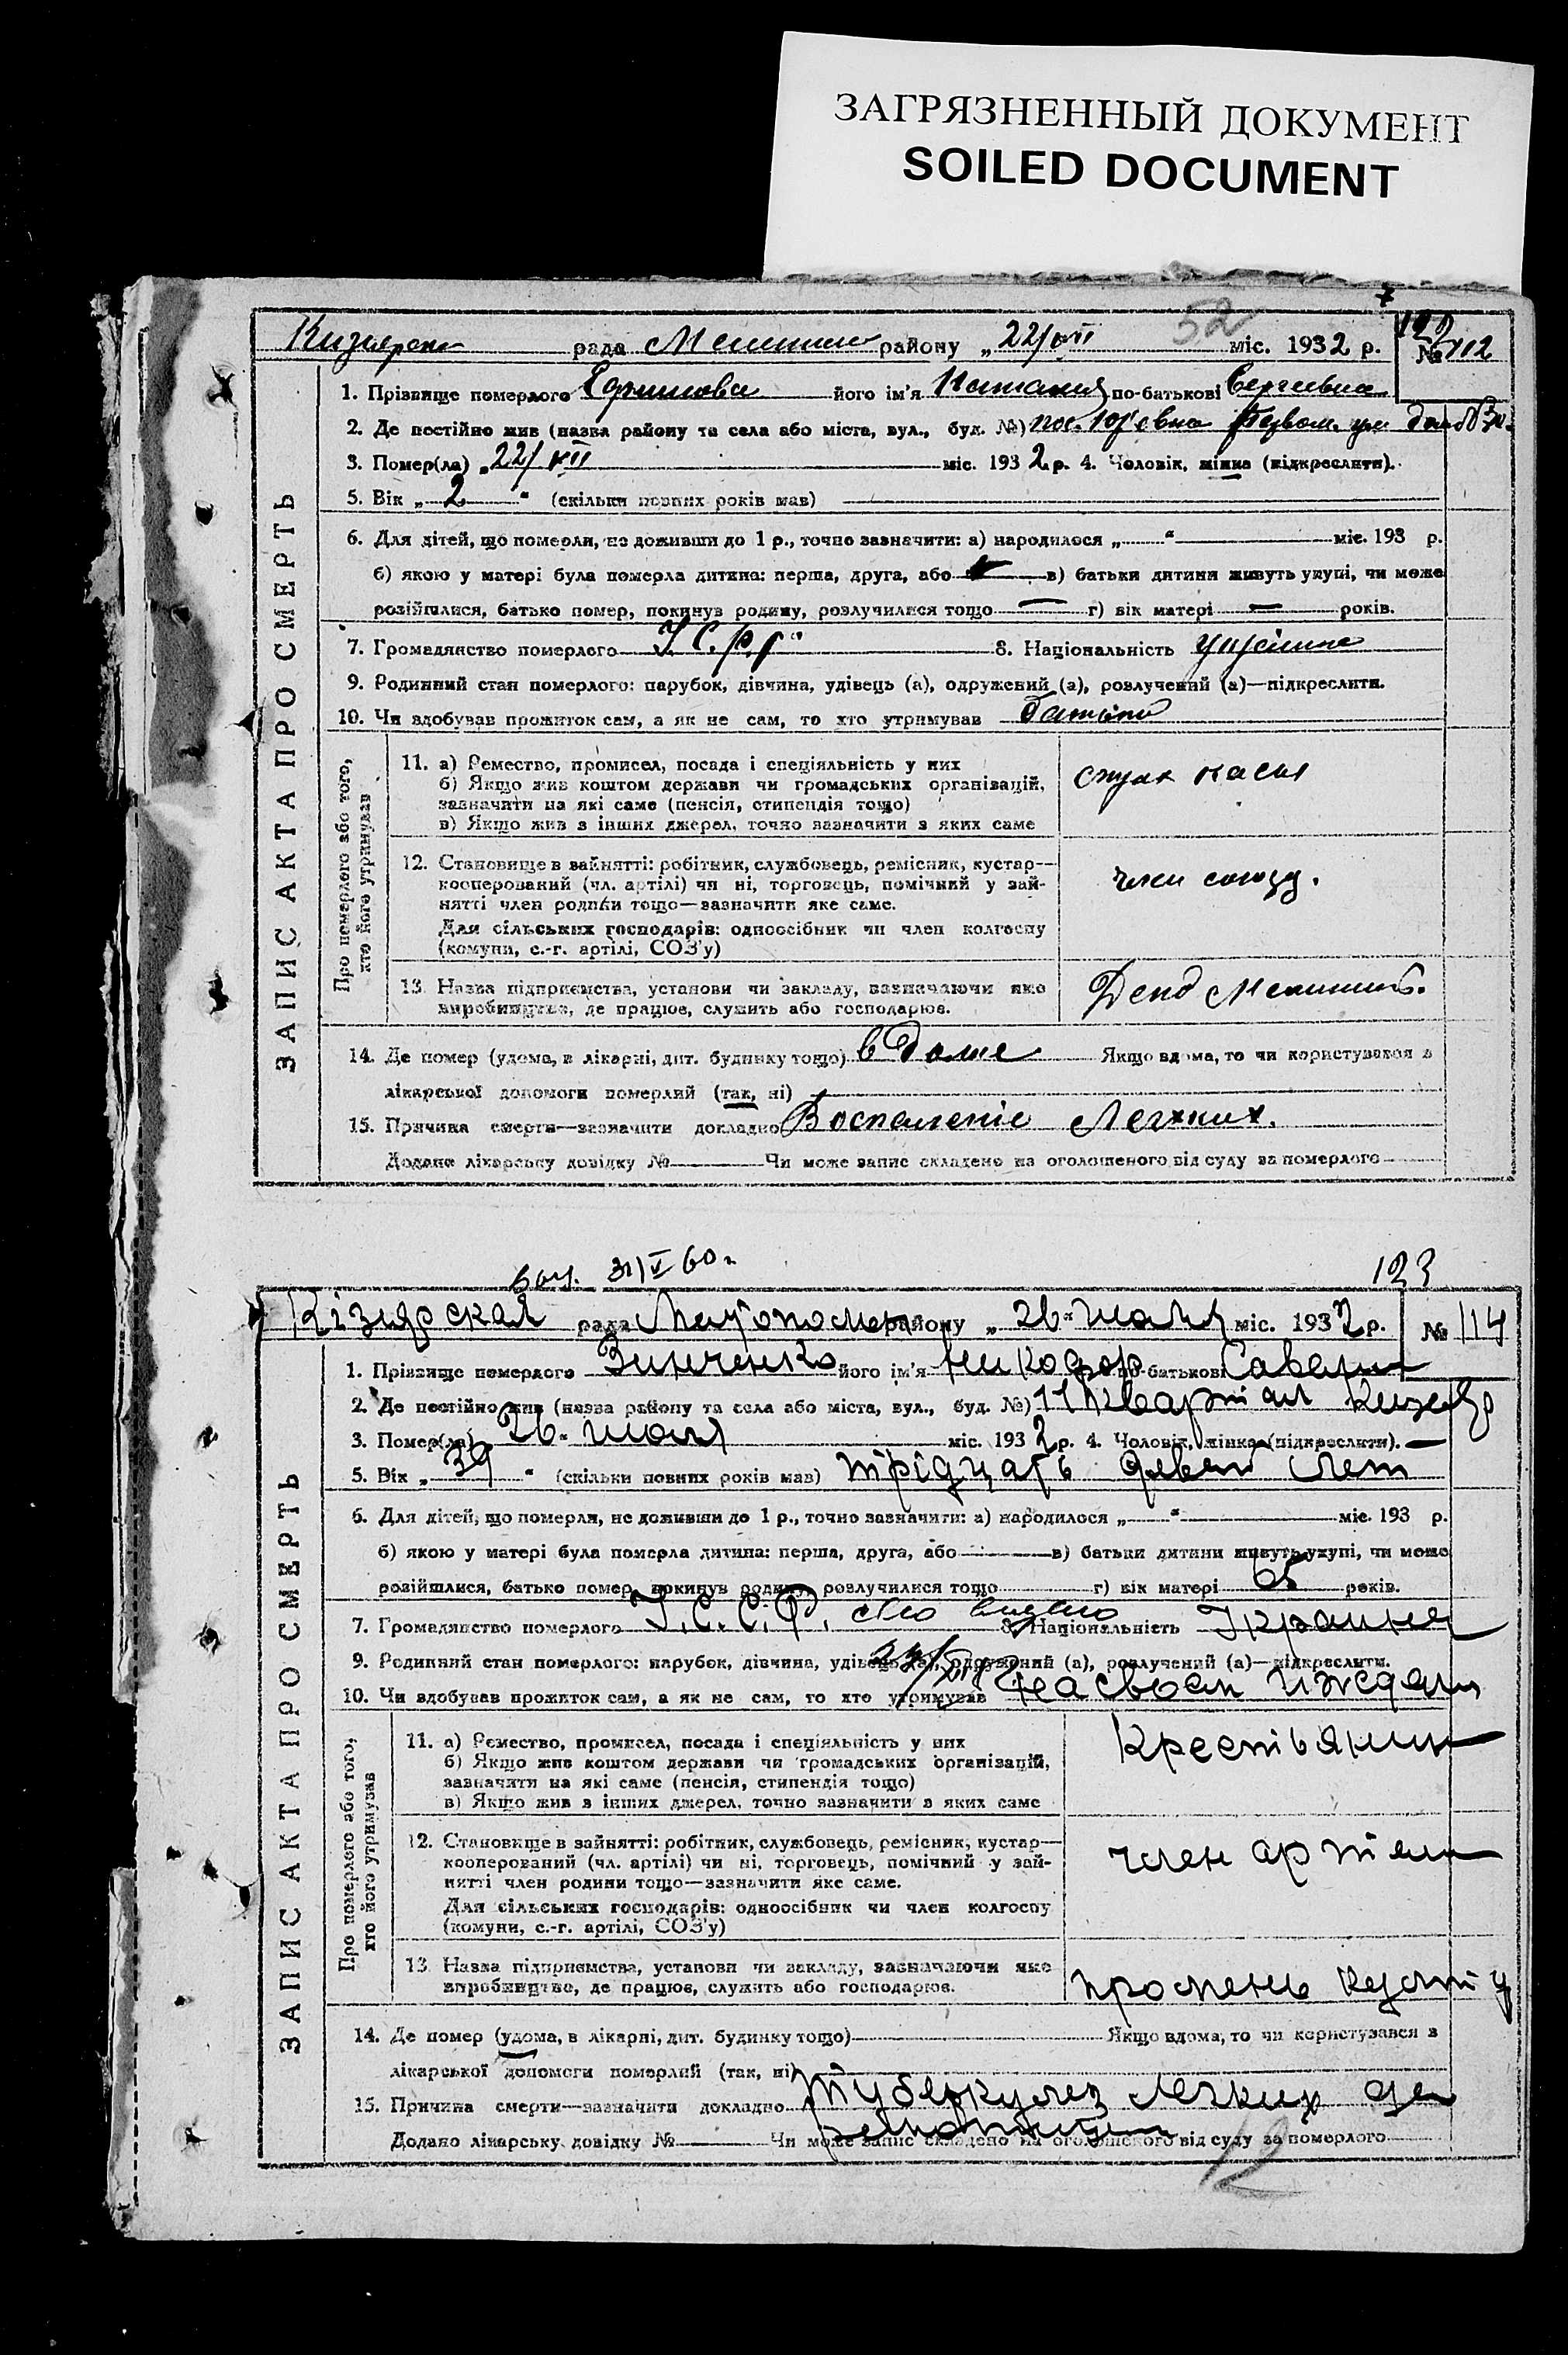 ЗАГРЯЗНЕННЫЙ ДОКУМЕНТ
SOILED DOCUMENT
52
122
рада району „22/VII міс. 1932 р. № 112
1. Прізвище померлого його ім'я Наталия по-батькові Сергеевна
2. Де постійно жив (назва району та села або міста, вул., буд. №) пос.
3. Помер(ла) „22/VII міс. 1932 р. 4. Чоловік, жінка (підкреслити).
5. Вік „2“ (скільки повних років мав)
6. Для дітей, що померли, не доживши до 1 р., точно зазначити: а) народилося „ “ міс. 193 р.
б) якою у матері була померла дитина: перша, друга, або — в) батьки дитини живуть укупі, чи може
розійшлися, батько помер, покинув родину, розлучилися тощо — г) вік матері — років.
7. Громадянство померлого 8. Національність
9. Родинний стан померлого: парубок, дівчина, удівець (а), одружений (а), розлучений (а)—підкреслити.
10. Чи здобував прожиток сам, а як не сам, то хто утримував
ЗАПИС АКТА ПРО СМЕРТЬ
Про померлого або того,
хто його утримував
11. а) Ремество, промисел, посада і спеціяльність у них
б) Якщо жив коштом держави чи громадських організацій,
зазначити на які саме (пенсія, стипендія тощо)
в) Якщо жив з інших джерел, точно зазначити з яких саме
12. Становище в зайнятті: робітник, службовець, ремісник, кустар—
кооперований (чл. артілі) чи ні, торговець, помічний у зай-
нятті член родини тощо—зазначити яке саме.
член союзу.
Для сільських господарів: одноосібник чи член колгоспу
(комуни, с.-г. артілі, СОЗ'у)
13. Назва підприємства, установи чи закладу, зазначаючи яко
виробництво, де працює, служить або господарює.
Депо
14. Де помер (удома, в лікарні, дит. будинку тощо) в доме Якщо вдома, то чи користувався з
лікарської допомоги померлий (так, ні)
15. Причина смерти—зазначити докладно Воспаленіе Легких.
Додано лікарську довідку № Чи може запис складено на оголошеного від суду за померлого
31/V 60г
123
Кізиярская рада району „26“ июля міс. 1932 р. № 114
1. Прізвище померлого Зинченко його ім'я Никофор по-батькові
2. Де постійно жив (назва району та села або міста, вул., буд. №) 11 квартал
3. Помер(ла) 26 июля міс. 1932 р. 4. Чоловік, жінка (підкреслити).
5. Вік „39“ (скільки повних років мав) трідцать девять лет
6. Для дітей, що померли, не доживши до 1 р., точно зазначити: а) народилося „ “ міс. 193 р.
б) якою у матері була померла дитина: перша, друга, або в) батьки дитини живуть укупі, чи може
розійшлися, батько помер, покинув родину, розлучилися тощо г) вік матері 65 років.
7. Громадянство померлого У.С.С.Р. 8. Національність
9. Родинний стан померлого: парубок, дівчина, удівець (а), одружений (а), розлучений (а)—підкреслити.
10. Чи здобував прожиток сам, а як не сам, то хто утримував на своем иждевении
ЗАПИС АКТА ПРО СМЕРТЬ
Про померлого або того,
хто його утримував
11. а) Ремество, промисел, посада і спеціяльність у них
б) Якщо жив коштом держави чи громадських організацій,
зазначити на які саме (пенсія, стипендія тощо)
в) Якщо жив з інших джерел, точно зазначити з яких саме
Крестьянин
12. Становище в зайнятті: робітник, службовець, ремісник, кустар—
кооперований (чл. артілі) чи ні, торговець, помічний у зай-
нятті член родини тощо—зазначити яке саме.
член артели
Для сільських господарів: одноосібник чи член колгоспу
(комуни, с.-г. артілі, СОЗ'у)
13. Назва підприємства, установи чи закладу, зазначаючи яко
виробництво, де працює, служить або господарює.
14. Де помер (удома, в лікарні, дит. будинку тощо) Якщо вдома, то чи користувався з
лікарської допомоги померлий (так, ні)
15. Причина смерти—зазначити докладно туберкулез легких
Додано лікарську довідку № Чи може запис складено на оголошеного від суду за померлого
12